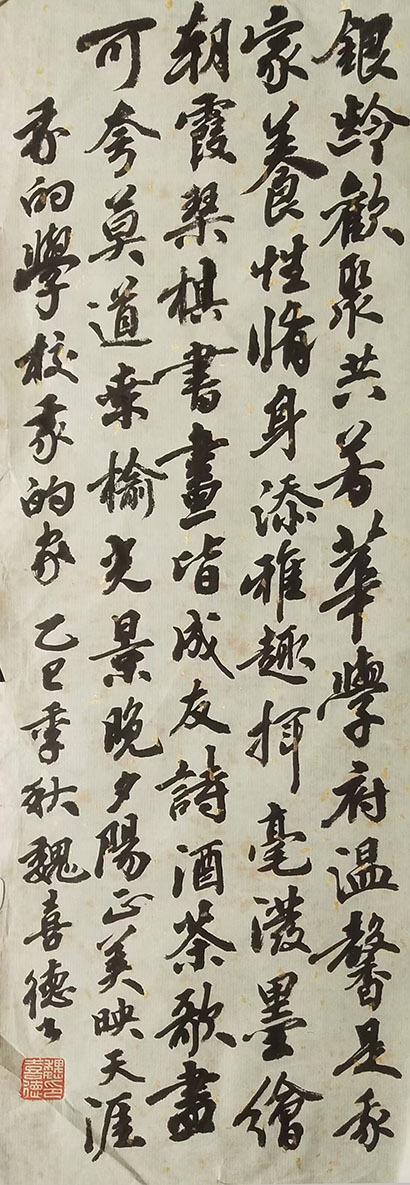 銀齡歡聚共芳華學府温馨是我
家養性脩身添雅趣揮毫潑墨繪
朝霞琹棋書畫皆成友詩酒茶歌畫
可夸莫道桑榆光景晚夕陽正美映天涯
我的學校我的家 乙巳季秋魏喜德書
魏喜德印